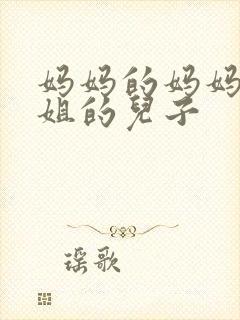 妈妈的妈妈
姐的兒子
瑶歌